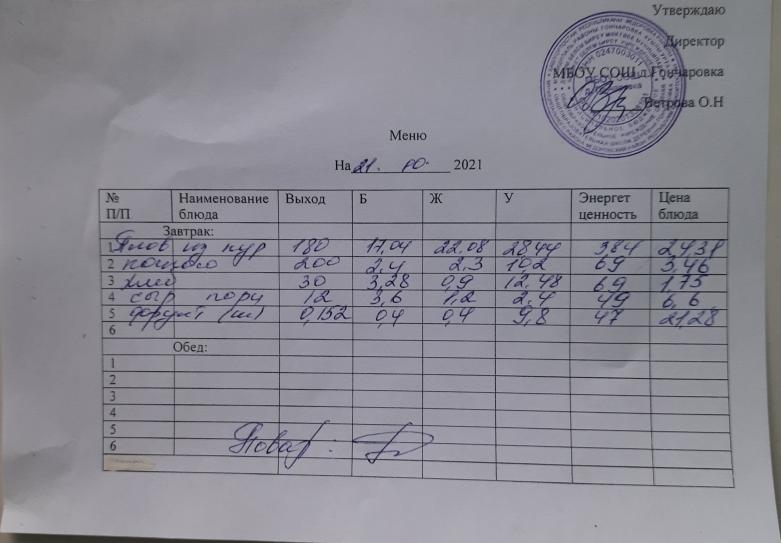 Утверждаю
Директор
МБОУ СОШ д.Гончаровка
Ветрова О.Н
Меню
На 21. 10. 2021
№ П/П Наименование блюда Выход Б Ж У Энергет ценность Цена блюда
Завтрак:
1 Плов из кур 180 17,04 22,08 28,44 384 24,31
2 200 2,4 2,3 10,2 69 3,46
3 хлеб 30 3,28 0,9 12,48 69 1,75
4 сыр порц 12 3,6 1,2 2,4 49 6,6
5 фрукт (шт) 0,152 0,4 0,4 9,8 47 21,28
6
Обед:
1
2
3
4
5
6
Повар: